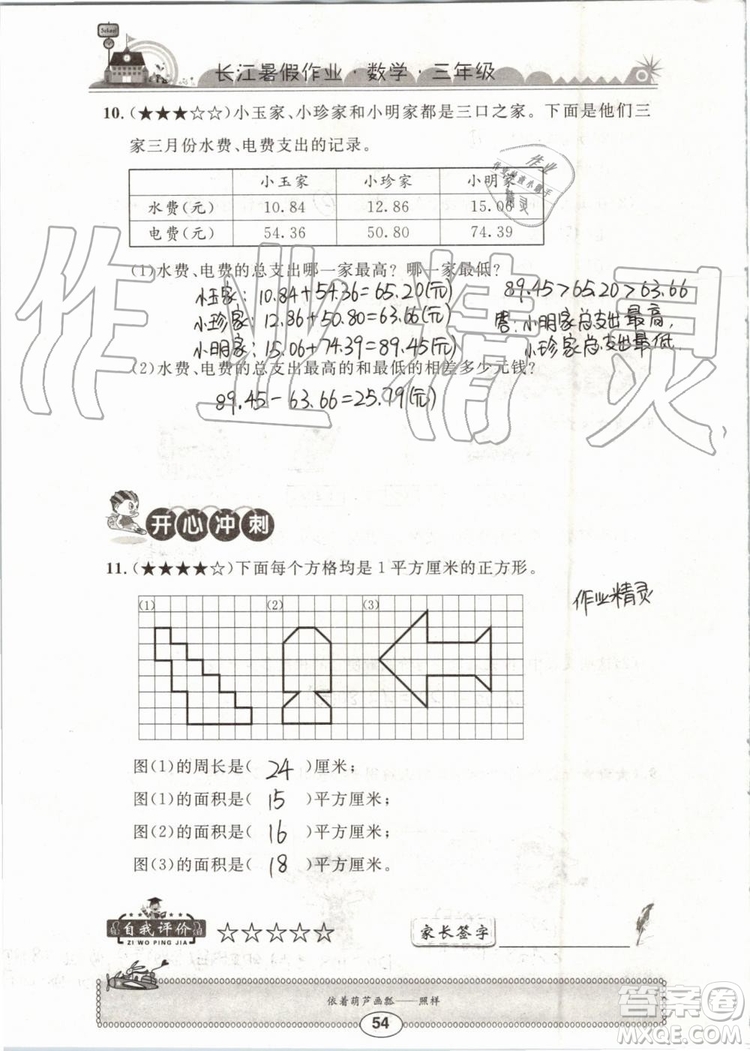 School
长江暑假作业·数学·三年级
10.(★★★☆☆)小玉家、小珍家和小明家都是三口之家。下面是他们三
家三月份水费、电费支出的记录。
小玉家 小珍家 小明家
水费(元) 10.84 12.86 15.06
电费(元) 54.36 50.80 74.39
(1)水费、电费的总支出哪一家最高?哪一家最低?
小玉家:10.84+54.36=65.20(元) 89.45>65.20>63.66
小珍家:12.86+50.80=63.66(元) 小明家总支出最高,
小明家:15.06+74.39=89.45(元) 小珍家总支出最低.
(2)水费、电费的总支出最高的和最低的相差多少元钱?
89.45-63.66=25.79(元)
作业精灵
开心冲刺
11.(★★★★☆)下面每个方格均是1平方厘米的正方形。
作业精灵
(1) (2) (3)
图(1)的周长是( 24 )厘米;
图(1)的面积是( 15 )平方厘米;
图(2)的面积是( 16 )平方厘米;
图(3)的面积是( 18 )平方厘米。
自我评价 ☆☆☆☆☆ 家长签字
ZI WO PING JIA
依着葫芦画瓢——照样
54
答案圈
MXQE.COM